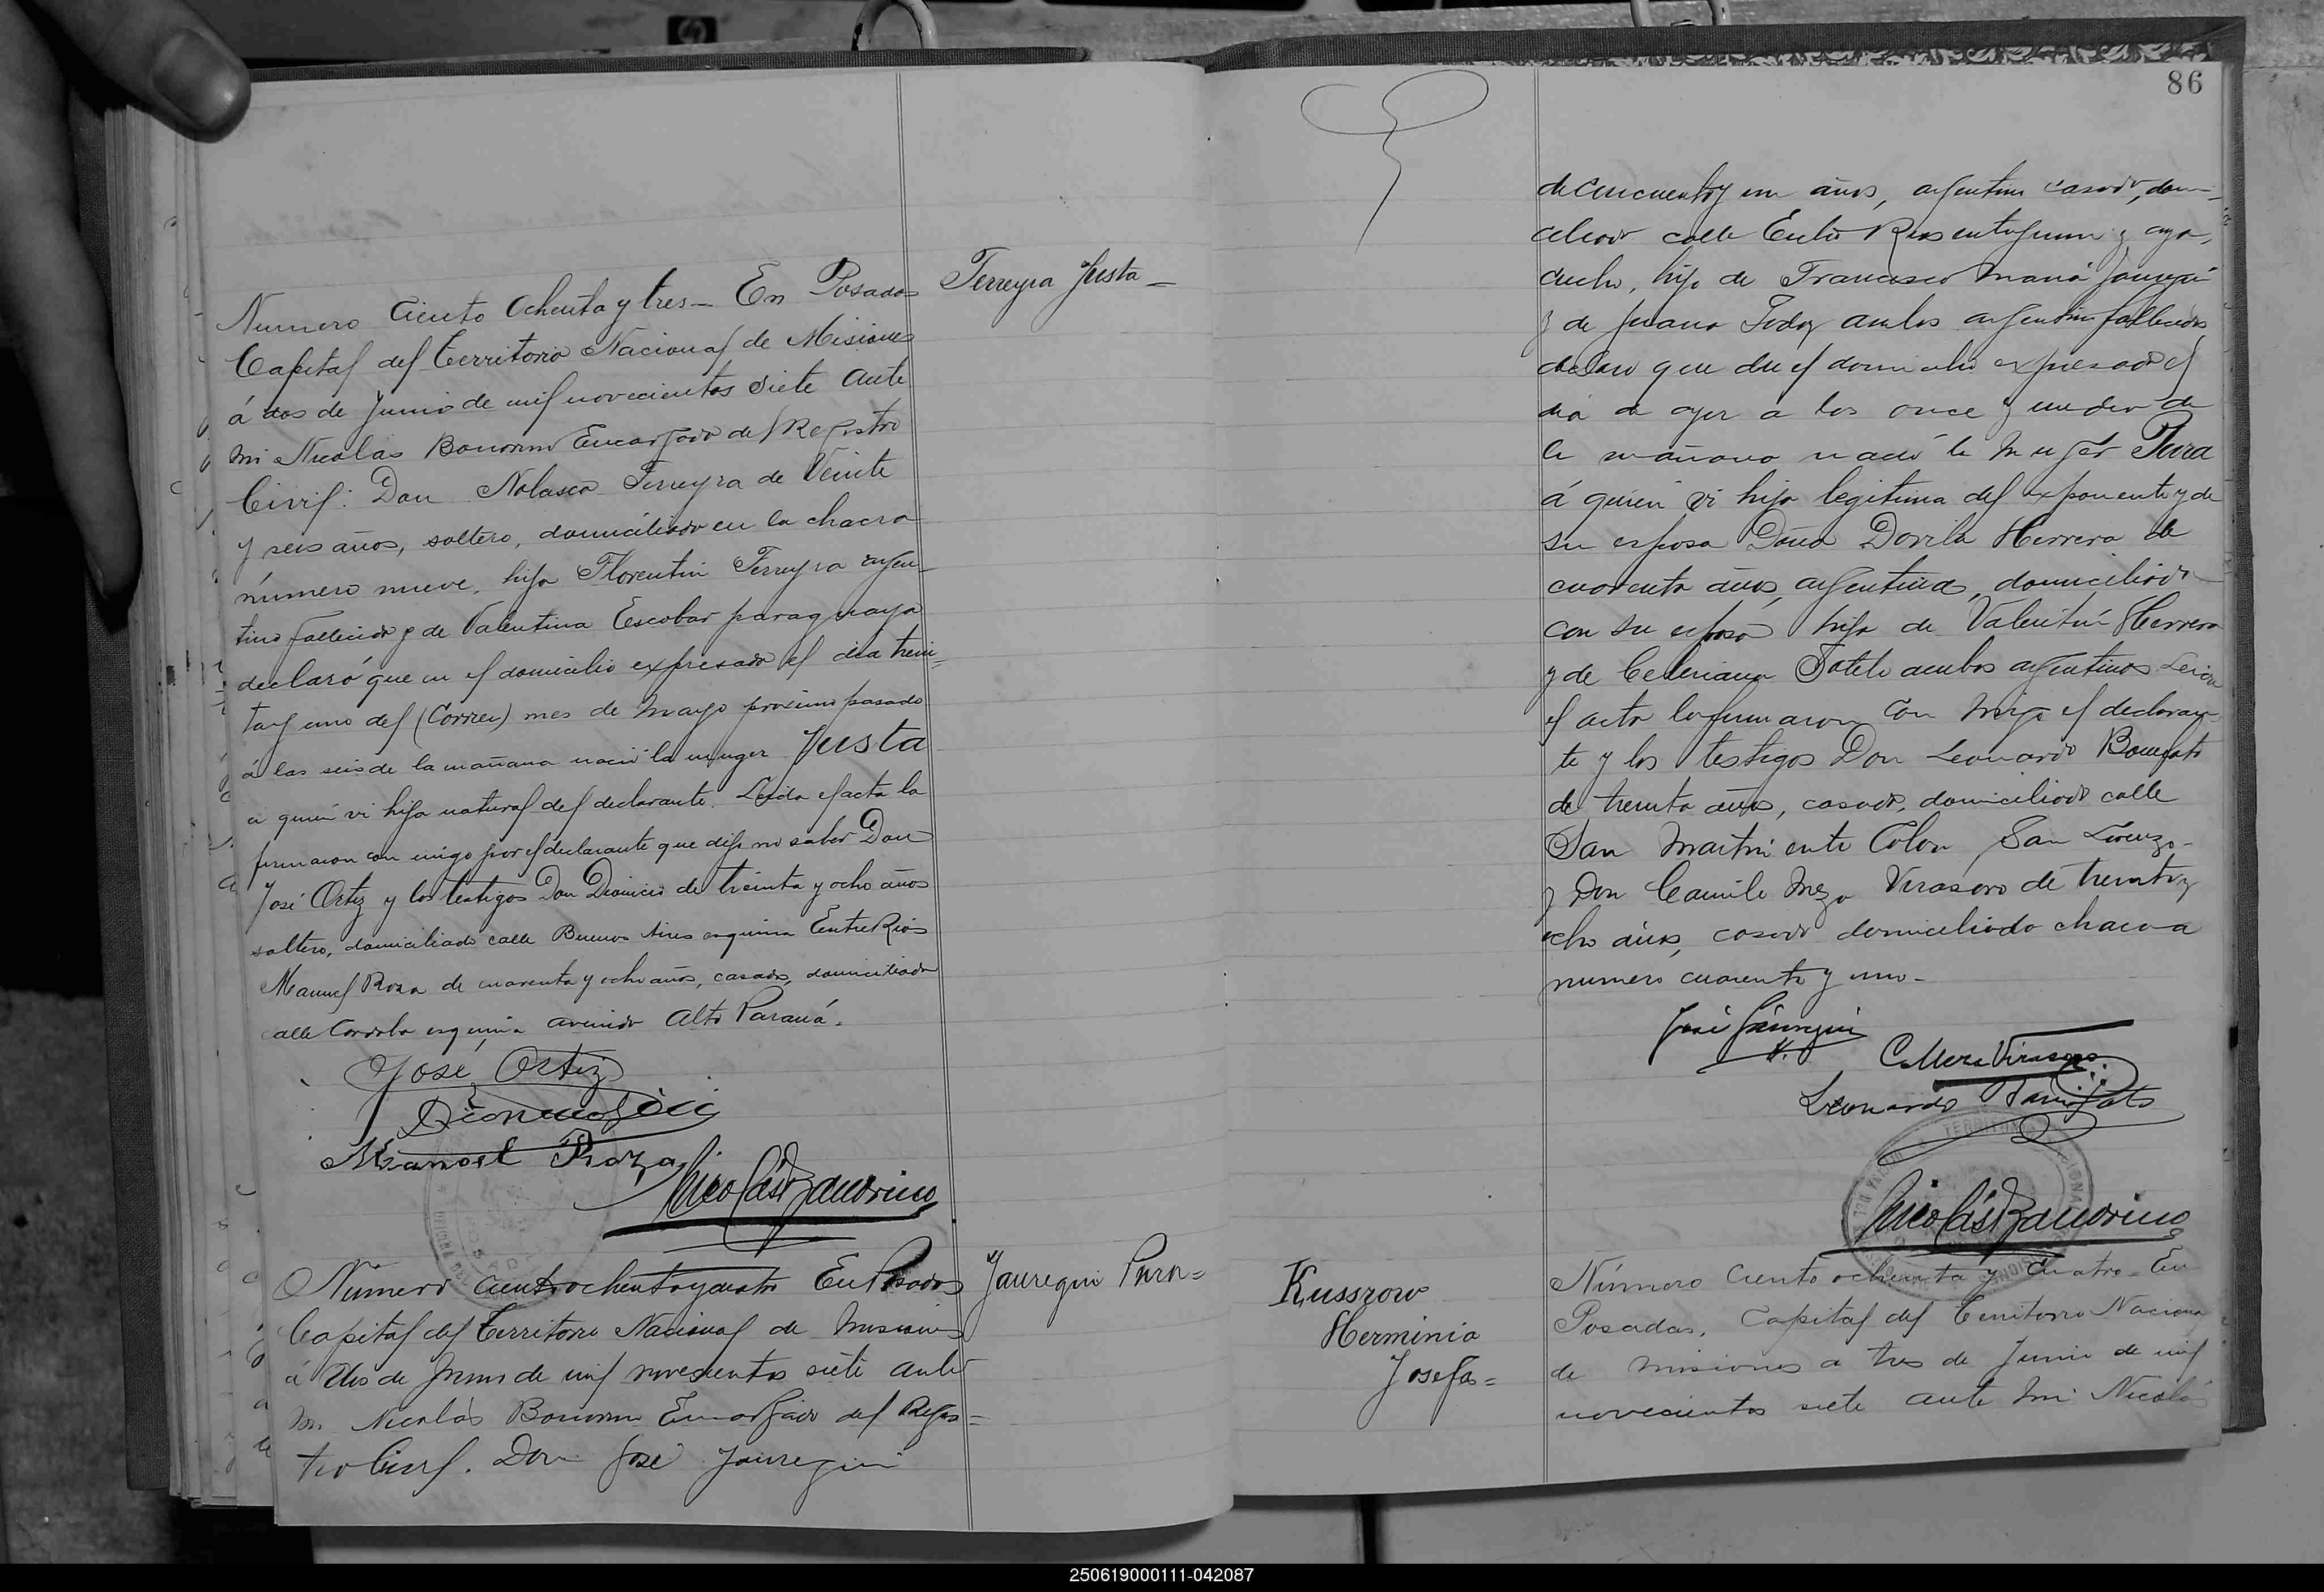 Numero Ciento Ochenta y tres - En Posadas
Ferreyra Justa -
Capital del Territorio Nacional de Misiones
á dos de Junio de mil novecientos siete ante
mi Nicolas Bonorino Encargado del Registro
Civil: Don Nolasco Ferreyra de Veinte
y seis años, soltero, domiciliado en la chacra
número nueve, hijo Florentin Ferreyra argen-
tino fallecido y de Valentina Escobar paraguaya
declaró que en el domicilio expresado el dia trein=
tay uno del (Corrien) mes de Mayo proximo pasado
á las seis de la mañana nació la muger Justa
a quien vi hija natural del declarante. Leida el acta la
firmaron con migo por el declarante que dijo no saber Don
José Ortiz y los testigos Don Dionicio de treinta y ocho años
soltero, domiciliado calle Buenos Aires esquina Entre Rios
Manuel Roza de cuarenta y ocho años, casado, domiciliado
calle Cordoba esquina avenida Alto Paraná.
José Ortiz
Manoel Roza
Nicolás Bonorino
Número ciento ochenta y cuatro En Posadas
Jauregui Pura=
Capital del Territorio Nacional de Misiones
á dos de Junio de mil novecientos siete ante
mi Nicolás Bonorino Encargado del Regis=
tro Civil. Don José Jauregui
86
de cincuenta y un años, argentino casado, domi-
ciliado calle Entre Rios y aya,
cucho, hijo de Francisco Maria Jauregui
y de Juana Godoy ambos argentinos fallecidos
declaro que en el domicilio expresado el
dia de ayer a las once y media de
la mañana nació la muger Pura
á quien vi hija legitima del exponente y de
su esposa Doña Dorila Herrera de
cuarenta años, argentina, domiciliada
con su esposo hija de Valentin Herrera
y de Celeriana Sotelo ambos argentinos Leida
el acta la firmaron con migo el declaran-
te y los testigos Don Leonardo Bonifato
de treinta años, casado, domiciliado calle
San Martin entre Colon y San Lorenzo-
y Don Camilo Meza Virasoro de treinta y
ocho años, casado domiciliado chacra
numero cuarenta y uno-
José Jauregui
C. Meza Virasoro
Leonardo Bonifato
Nicolás Bonorino
Kussrow
Herminia
Josefa=
Número Ciento ochenta y Cuatro - En
Posadas, Capital del Territorio Naciona
de Misiones a tres de Junio de mil
novecientos siete ante mi Nicolás
250619000111-042087